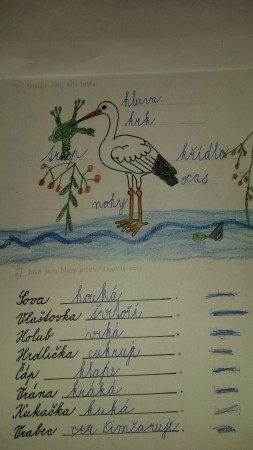 hlava
krk
trup
křídlo
ocas
nohy
Sova houká.
Vlaštovka švitoří.
Holub vrká.
Hrdlička cukruje.
Čáp klape.
Vrána kráká.
Kukačka kuká.
Vrabec čimčaruje.